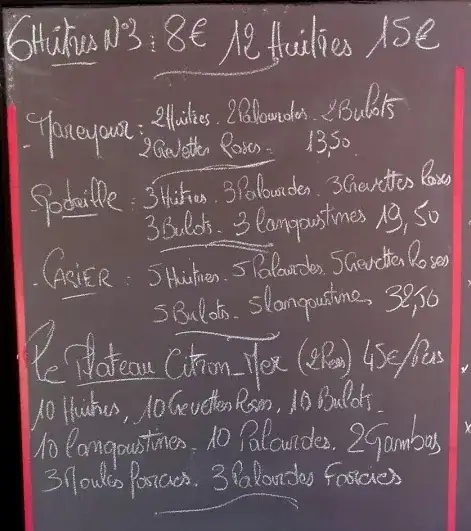 6 Huîtres N°3 : 8€ 12 Huîtres 15€
- Mareyeur : 2 Huîtres . 2 Palourdes . 2 Bulots
2 Crevettes Roses - 13,50
- Godaille : 3 Huîtres . 3 Palourdes . 3 Crevettes Roses
3 Bulots - 3 langoustines 19,50
- CASIER : 5 Huîtres . 5 Palourdes . 5 Crevettes Roses
5 Bulots - 5 langoustines 32,50
Le Plateau Citron-Mer (2 Pers) 45€/Pers
10 Huîtres, 10 Crevettes Roses, 10 Bulots -
10 langoustines . 10 Palourdes . 2 Gambas
3 Moules farcies . 3 Palourdes Farcies